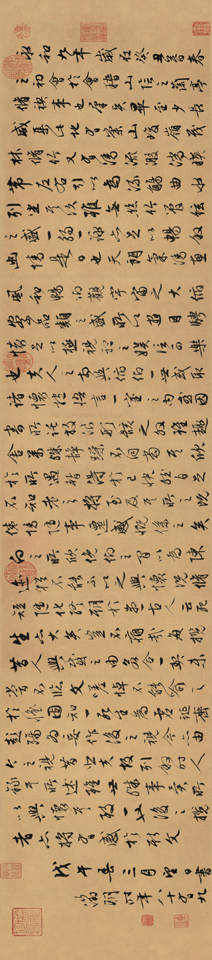 永和九年歲在癸丑暮春
之初會于會稽山陰之蘭亭
脩禊事也羣賢畢至少長
咸集此地有崇山峻領茂
林脩竹又有清流激湍映
帶左右引以為流觴曲水
列坐其次雖無絲竹管弦
之盛一觴一詠亦足以暢叙
幽情是日也天朗氣清惠
風和暢仰觀宇宙之大俯
察品類之盛所以遊目騁
懷足以極視聽之娛信可樂
也夫人之相與俯仰一世或取
諸懷抱悟言一室之內或因
寄所託放浪形骸之外雖趣
舍萬殊靜躁不同當其欣
於所遇暫得於己快然自足
不知老之將至及其所之既
倦情隨事遷感慨係之矣
向之所欣俛仰之間以為陳
迹猶不能不以之興懷況脩
短隨化終期於盡古人云死
生亦大矣豈不痛哉每攬
昔人興感之由若合一契未
嘗不臨文嗟悼不能喻之
於懷固知一死生為虛誕齊
彭殤為妄作後之視今亦由
今之視昔悲夫故列敘時人
錄其所述雖世殊事異所
以興懷其致一也後之攬
者亦將有感於斯文
戊午三月望日書
徵明年八十九